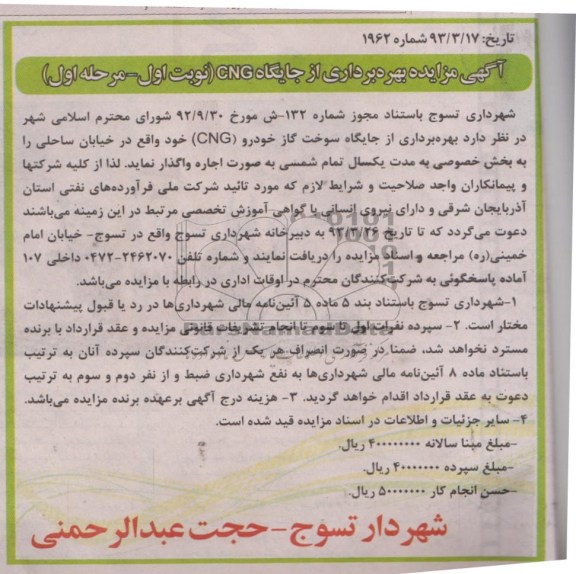 تاریخ: ۹۳/۳/۱۷ شماره ۱۹۶۲
آگهی مزایده بهره‌برداری از جایگاه CNG (نوبت اول-مرحله اول)
شهرداری تسوج باستناد مجوز شماره ۱۳۲-ش مورخ ۹۲/۹/۳۰ شورای محترم اسلامی شهر
در نظر دارد بهره‌برداری از جایگاه سوخت گاز خودرو (CNG) خود واقع در خیابان ساحلی را
به بخش خصوصی به مدت یکسال تمام شمسی به صورت اجاره واگذار نماید. لذا از کلیه شرکتها
و پیمانکاران واجد صلاحیت و شرایط لازم که مورد تائید شرکت ملی فرآورده‌های نفتی استان
آذربایجان شرقی و دارای نیروی انسانی با گواهی آموزش تخصصی مرتبط در این زمینه می‌باشند
دعوت می‌گردد که تا تاریخ ۹۳/۳/۲۶ به دبیرخانه شهرداری تسوج واقع در تسوج- خیابان امام
خمینی(ره) مراجعه و اسناد مزایده را دریافت نمایند و شماره تلفن ۲۴۶۲۰۷۰-۰۴۷۲ داخلی ۱۰۷
آماده پاسخگوئی به شرکت‌کنندگان محترم در اوقات اداری در رابطه با مزایده می‌باشد.
۱-شهرداری تسوج باستناد بند ۵ ماده ۵ آئین‌نامه مالی شهرداری‌ها در رد یا قبول پیشنهادات
مختار است. ۲- سپرده نفرات اول تا سوم تا انجام تشریفات قانونی مزایده و عقد قرارداد با برنده
مسترد نخواهد شد، ضمنا در صورت انصراف هر یک از شرکت‌کنندگان سپرده آنان به ترتیب
باستناد ماده ۸ آئین‌نامه مالی شهرداری‌ها به نفع شهرداری ضبط و از نفر دوم و سوم به ترتیب
دعوت به عقد قرارداد اقدام خواهد گردید. ۳- هزینه درج آگهی برعهده برنده مزایده می‌باشد.
۴- سایر جزئیات و اطلاعات در اسناد مزایده قید شده است.
-مبلغ مبنا سالانه ۴۰۰۰۰۰۰۰۰ ریال.
-مبلغ سپرده ۴۰۰۰۰۰۰۰ ریال.
-حسن انجام کار ۵۰۰۰۰۰۰۰ ریال.
شهردار تسوج-حجت عبدالرحمنی